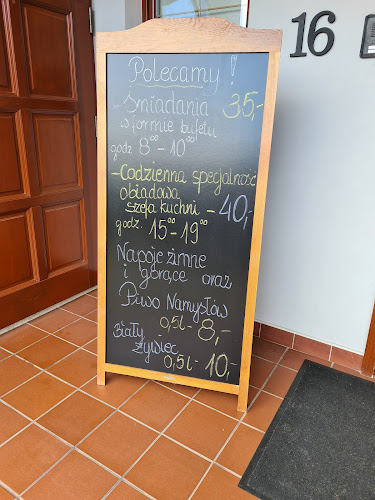 16
Polecamy!
- Śniadania 35,-
w formie bufetu
godz 8⁰⁰ - 10⁰⁰
- Codzienna specjalność
obiadowa
szefa kuchni - 40,-
godz. 15⁰⁰ - 19⁰⁰
Napoje zimne
i gorące oraz
Piwo Namysłów
0,5l - 8,-
Biały
Żywiec
0,5l - 10,-